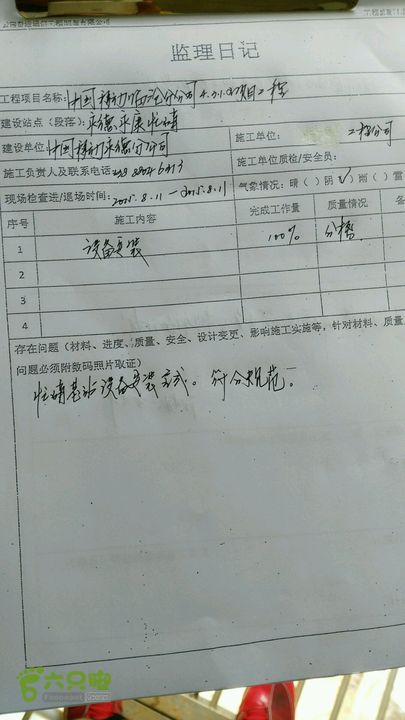 监理日记
工程项目名称：中国移动临沧分公司4.3.1.0项目工程
建设站点（段落）：永德永康忙
建设单位：中国移动永德分公司 施工单位： 工程公司
施工负责人及联系电话 施工单位质检/安全员：
现场检查进/退场时间：2015.8.11—2015.8.11 气象情况：晴（）阴（√）雨（）雷
序号 施工内容 完成工作量 质量情况
1 设备安装 100% 合格
2
3
4
存在问题（材料、进度、质量、安全、设计变更、影响施工实施等，针对材料、质量
问题必须附数码照片取证）
基站设备安装完成。符合规范。
六只脚
Foooooot.com